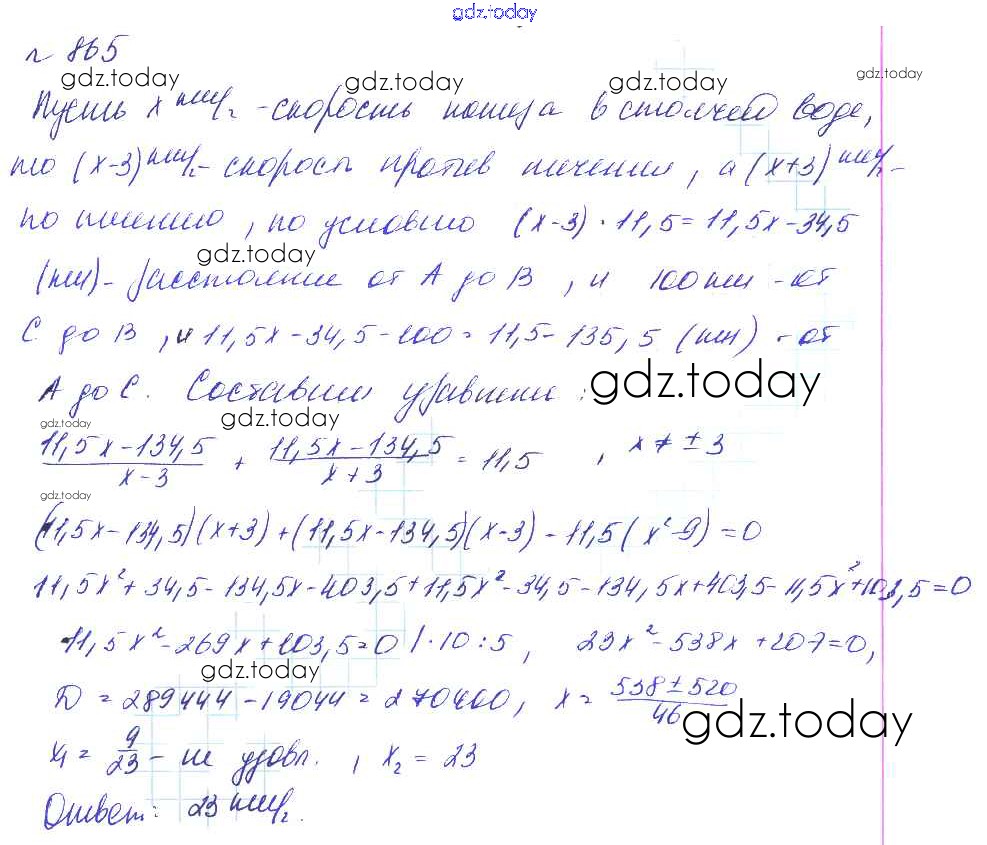 gdz.today
№ 865
gdz.today gdz.today gdz.today
Пусть x км/ч - скорость катера в стоячей воде,
то (x-3) км/ч - скорость против течения, а (x+3) км/ч -
по течению, по условию (x-3) · 11,5 = 11,5x - 34,5
gdz.today
(км) - расстояние от A до B, и 100 км - от
C до B, и 11,5x - 34,5 - 100 = 11,5 - 135,5 (км) - от
gdz.today
A до C. Составим уравнение:
gdz.today gdz.today
(11,5x - 134,5)/(x - 3) + (11,5x - 134,5)/(x + 3) = 11,5, x ≠ ± 3
gdz.today
(11,5x - 134,5)(x+3) + (11,5x - 134,5)(x-3) - 11,5(x² - 9) = 0
11,5x² + 34,5 - 134,5x - 403,5 + 11,5x² - 34,5 - 134,5x + 403,5 - 11,5x² + 103,5 = 0
11,5x² - 269x + 103,5 = 0 | · 10 : 5, 23x² - 538x + 207 = 0,
gdz.today
D = 289444 - 19044 = 270400, x = (538 ± 520)/46
gdz.today
x₁ = 9/23 - не удовл., x₂ = 23
Ответ: 23 км/ч.